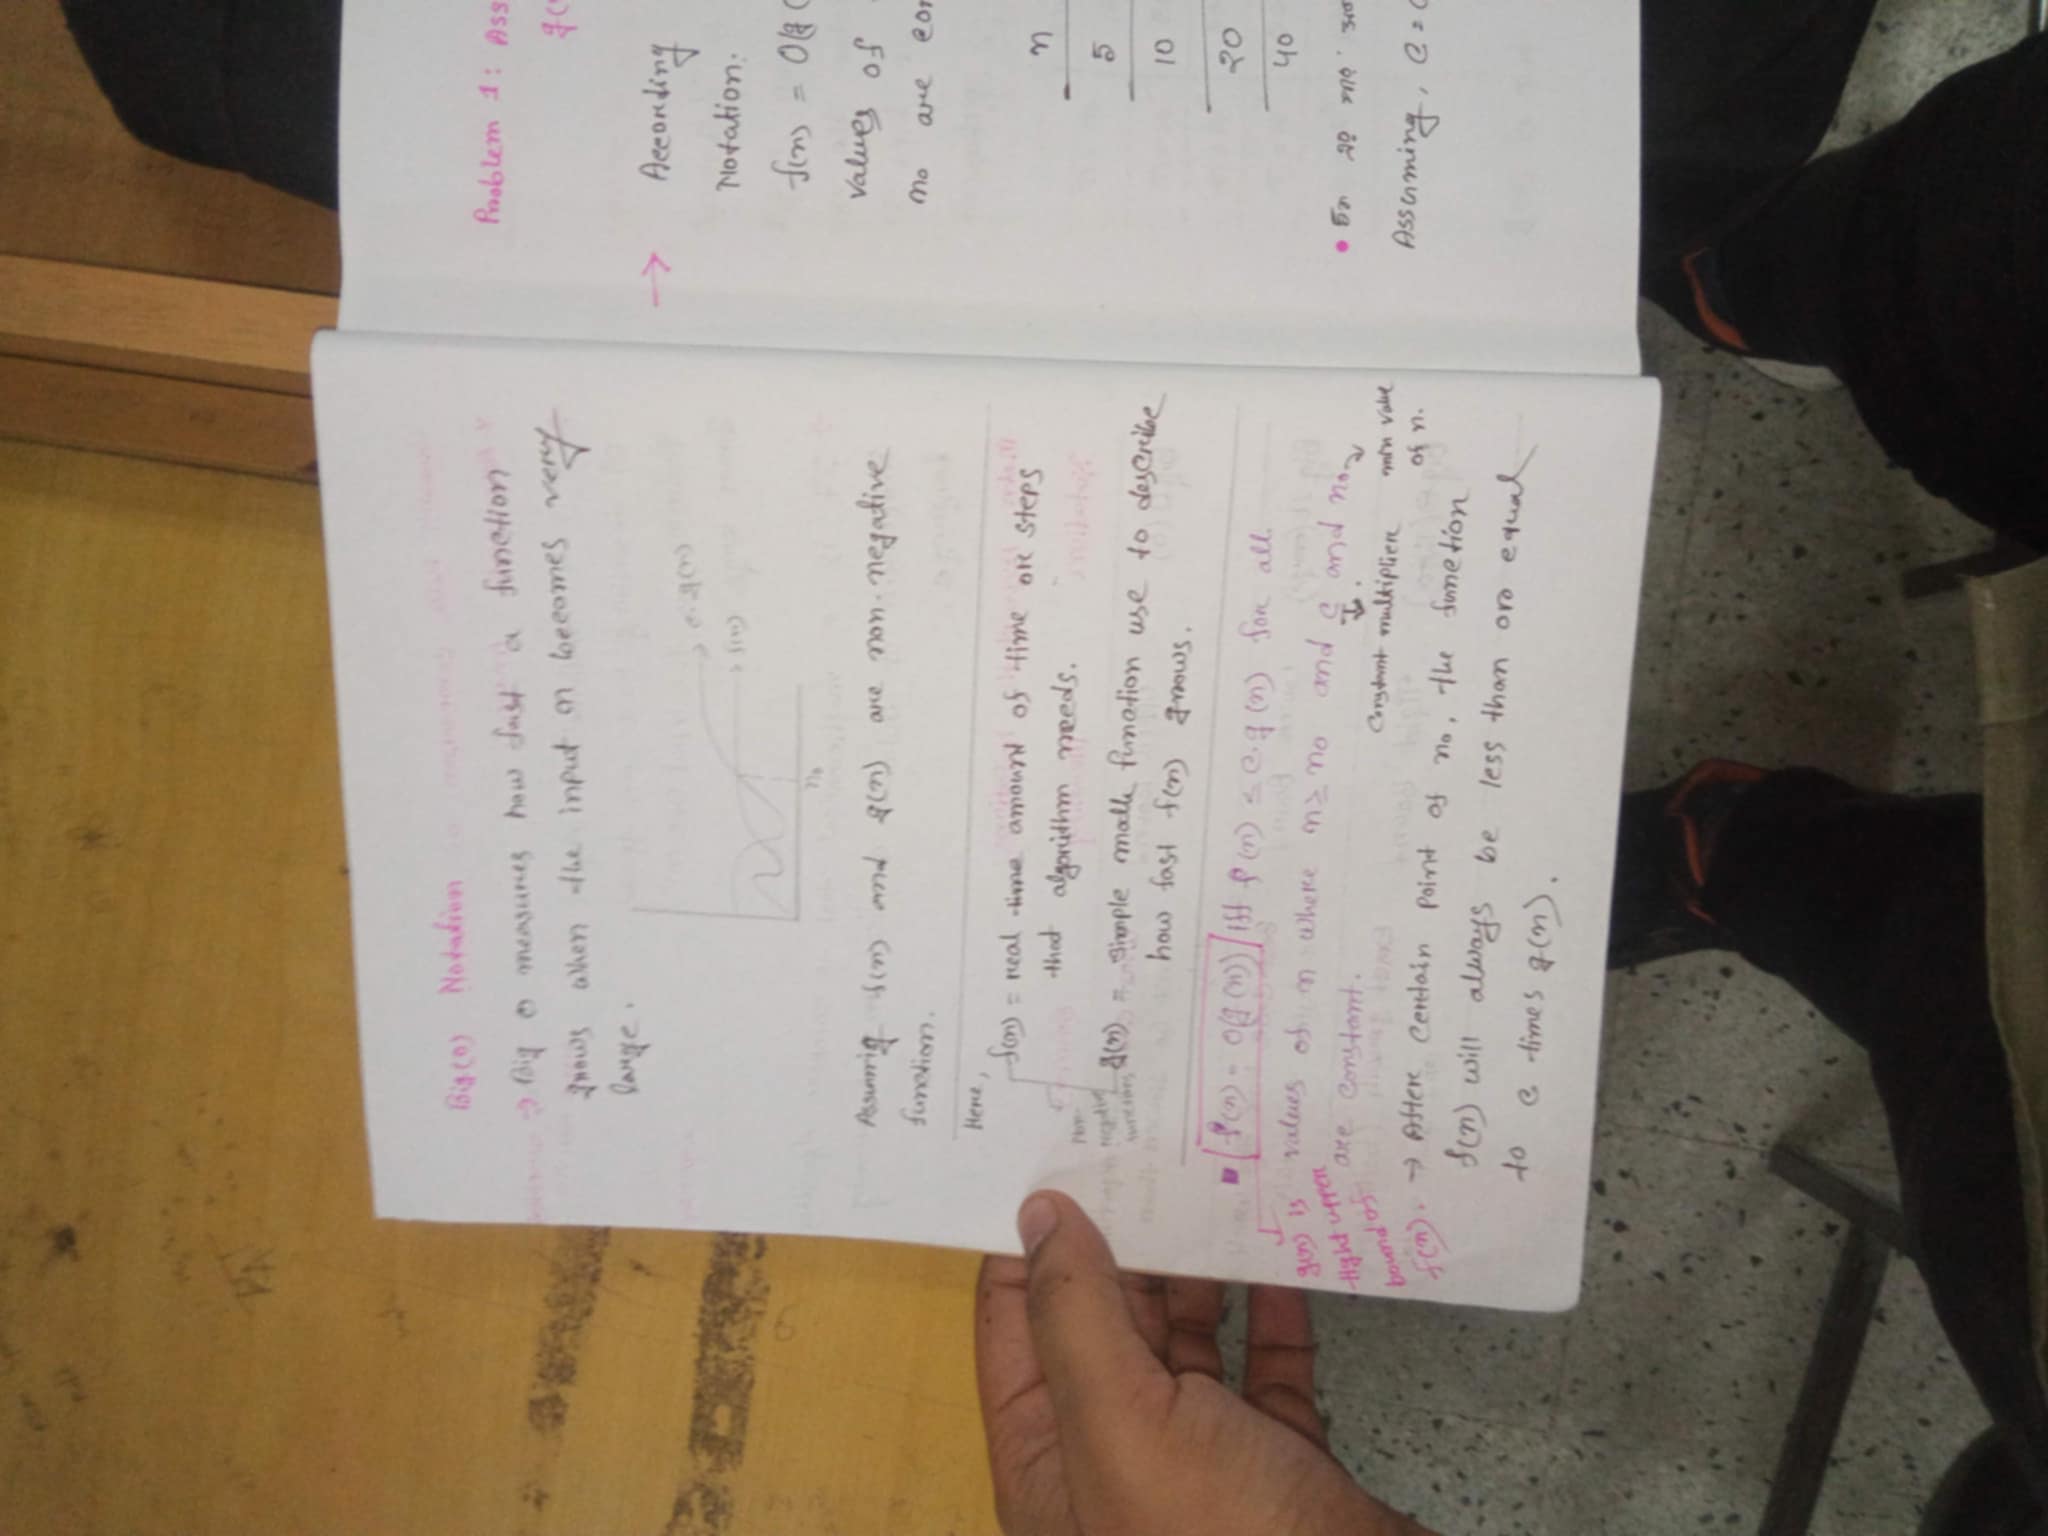 Big(O) Notation
→ Big O measures how fast a function
grows when the input n becomes very
large.
c.g(n)
f(n)
n₀
Assumig f(n) and g(n) are non-negative
function.
Here,
f(n) = real time amount of time or steps
that algorithm needs.
Non-
Negative
functions
g(n) = simple math function use to describe
how fast f(n) grows.
f(n) = O(g(n)) iff f(n) ≤ c.g(n) for all.
values of n where n ≥ n₀ and c and n₀
are constant.
Constant multiplier
min value
of n.
g(n) is
tight upper
bound of
f(n).
→ After certain point of n₀, the function
f(n) will always be less than oro equal
to c times g(n).
Problem 1: Ass
g(
→ According
Notation.
f(n) = O(g(
values of
n₀ are con
n
5
10
20
40
Assuming, c =